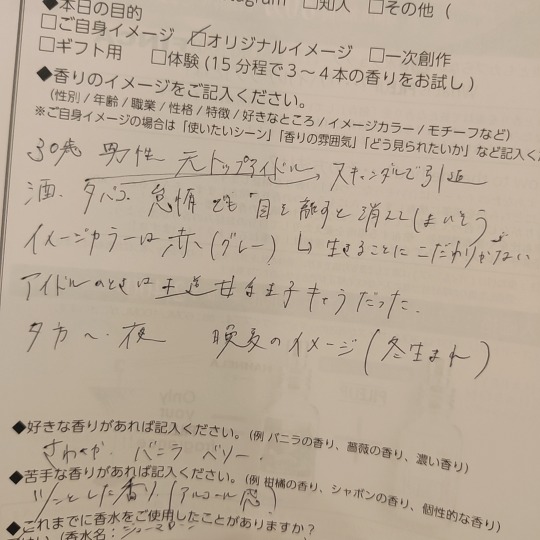 ◆本日の目的
□知人 □その他 (
□ご自身イメージ ☑オリジナルイメージ □一次創作
□ギフト用 □体験 (15分程で3~4本の香りをお試し)
◆香りのイメージをご記入ください。
(性別 / 年齢 / 職業 / 性格 / 特徴 / 好きなところ / イメージカラー / モチーフなど)
※ご自身イメージの場合は「使いたいシーン」「香りの雰囲気」「どう見られたいか」など記入く
30歳 男性 元トップアイドル、スキャンダルで引退
酒、タバコ 怠惰 でも「目を離すと消えてしまいそう」
イメージカラーは赤(グレー) ↳生きることにこだわりがない
アイドルのときは王道甘々王子キャラだった.
夕方~夜 晩夏のイメージ(冬生まれ)
◆好きな香りがあれば記入ください。(例 バニラの香り、薔薇の香り、濃い香り)
さわやか. バニラ ベリー.
◆苦手な香りがあれば記入ください。(例 柑橘の香り、シャボンの香り、個性的な香り)
ツンとした香り.(アルコール感)
◆これまでに香水をご使用したことがありますか?
(香水名: